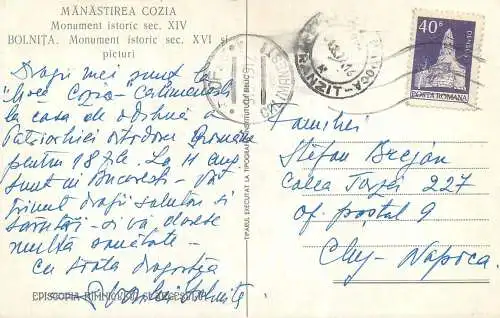 MĂNĂSTIREA COZIA
Monument istoric sec. XIV
BOLNIȚA. Monument istoric sec. XVI și
picturi
Dragii mei sunt la
Cozia - Călimănești
la casa de odihnă a
Patriarhiei ortodoxe Române
pentru 18 zile. La 11 aug.
sunt în București - Vă
trimit dragi salutări și
sărutări - și vă doresc
multă sănătate -
cu toată dragostea
EPISCOPIA RÎMNICULUI ȘI ARGEȘULUI
TIPARUL EXECUTAT LA TIPOGRAFIA INSTITUTULUI BIBLIC
TRANZIT
40 B
POSTA ROMANA
Familiei
Ștefan Brejan
Calea Turzii 227
of. poștal 9
Cluj-Napoca